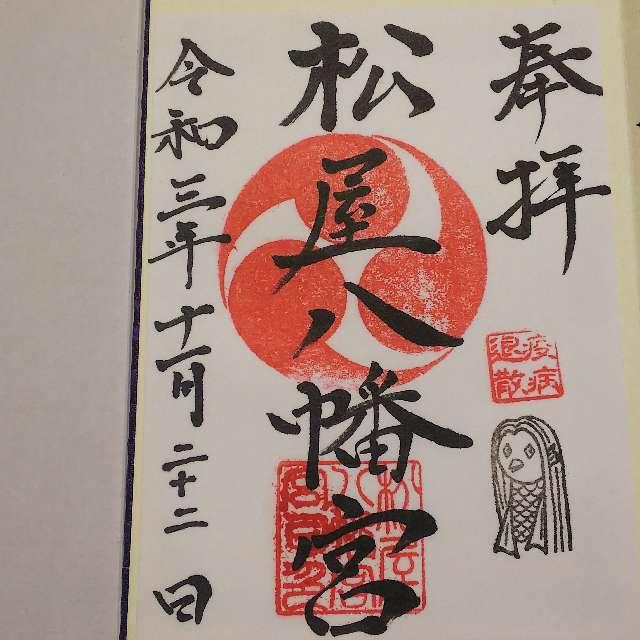 奉拝
疫病
退散
松屋八幡宮
令和三年十一月二十二日